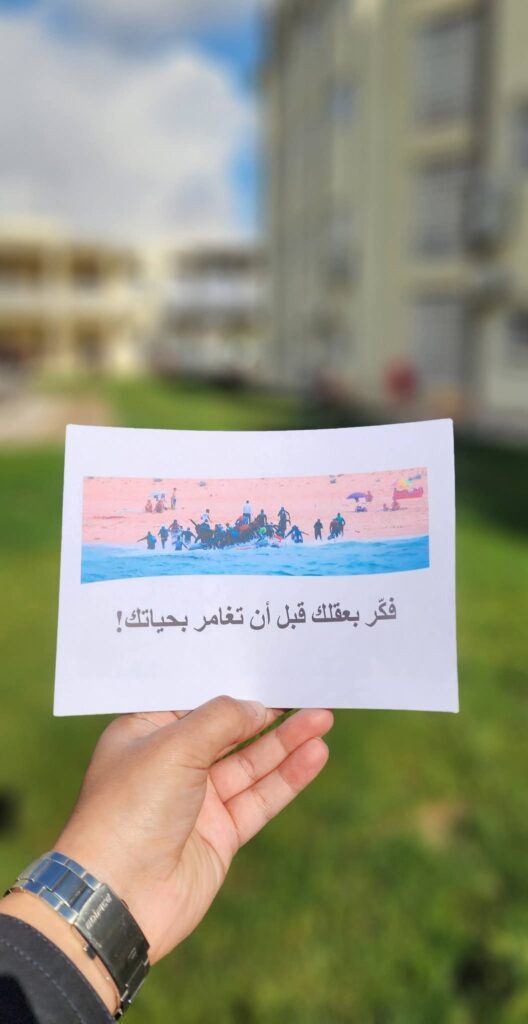 فكّر بعقلك قبل أن تغامر بحياتك!